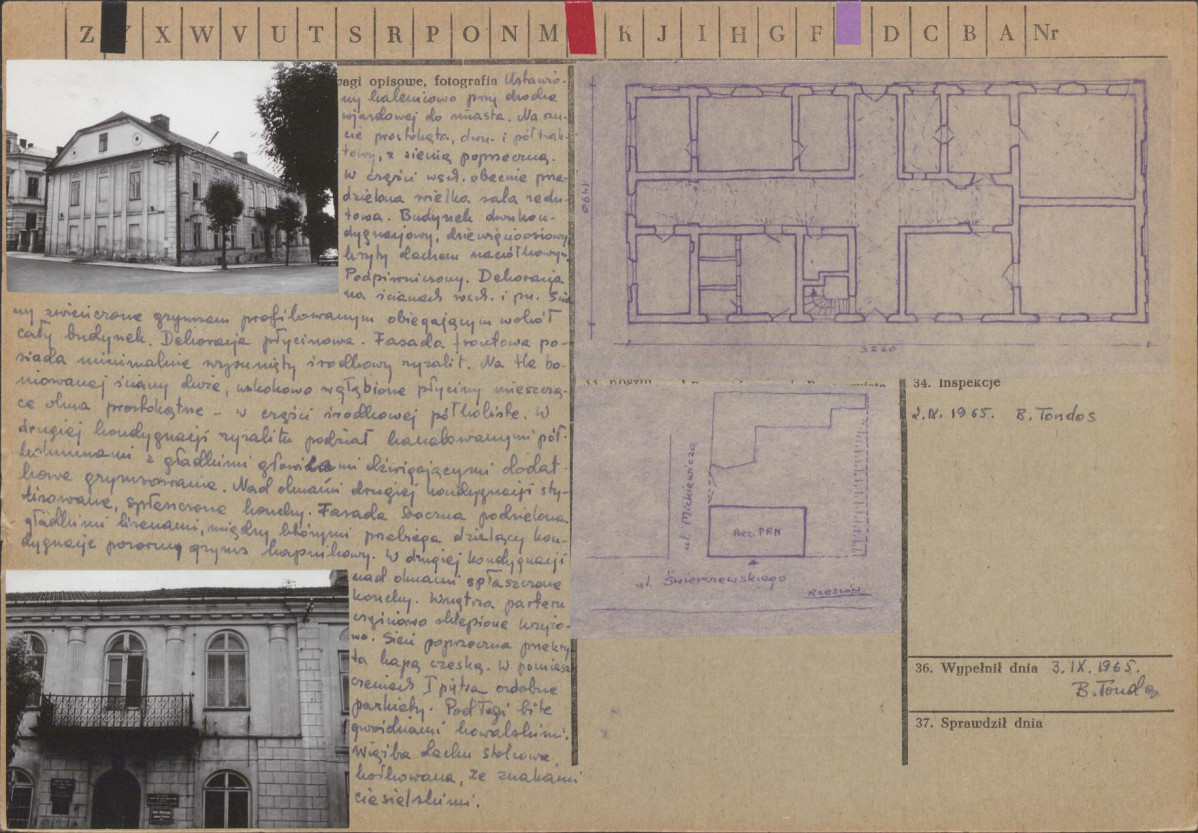 Z X W V U T S R P O N M K J I H G F D C B A Nr
wagi opisowe, fotografia Ustawio-
ny kalenicowo przy drodze
wjazdowej do miasta. Na rzu-
cie prostokąta, dwu- i półtrak-
towy, z sienią poprzeczną.
W części wsch. obecnie prze-
dzielona wielka sala redu-
towa. Budynek dwukon-
dygnacyjowy, dziewięcioosiowy
kryty dachem naczółkowym.
Podpiwniczony. Dekoracja
na ścianach wsch. i pn. Ścia
ny zwieńczone gzymsem profilowanym obiegającym wokół
cały budynek. Dekoracja płycinowa. Fasada frontowa po-
siada minimalnie wysunięty środkowy ryzalit. Na tle bo-
niowanej ściany duże, uskokowo wgłębione płyciny mieszczą-
ce okna prostokątne - w części środkowej półkoliste. W
drugiej kondygnacji ryzalitu podział kanelowanymi pół-
kolumnami z gładkimi głowicami dźwigającymi dodat-
kowe gzymsowanie. Nad oknami drugiej kondygnacji sty-
lizowane, spłaszczone konchy. Fasada boczna podzielona
gładkimi lizenami, między którymi przebiega dzielący kon-
dygnacje pozorny gzyms kapnikowy. W drugiej kondygnacji
nad oknami spłaszczone
konchy. Wnętrza parteru
sklepione krzyżo-
wo. Sień poprzeczna przekry
ta kapą czeską. W pomiesz
czeniach I piętra ozdobne
parkiety. Podłogi bite
gwoździami kowalskimi.
Więźba dachu stolcowa,
kołkowana, ze znakami
ciesielskimi.
1490
3260
ul. Mickiewicza
Prez. PRN
ul. Świerczewskiego
Rzeszów
34. Inspekcje
2.IX. 1965. B. Tondos
36. Wypełnił dnia 3.IX.1965.
B. Tondos
37. Sprawdził dnia